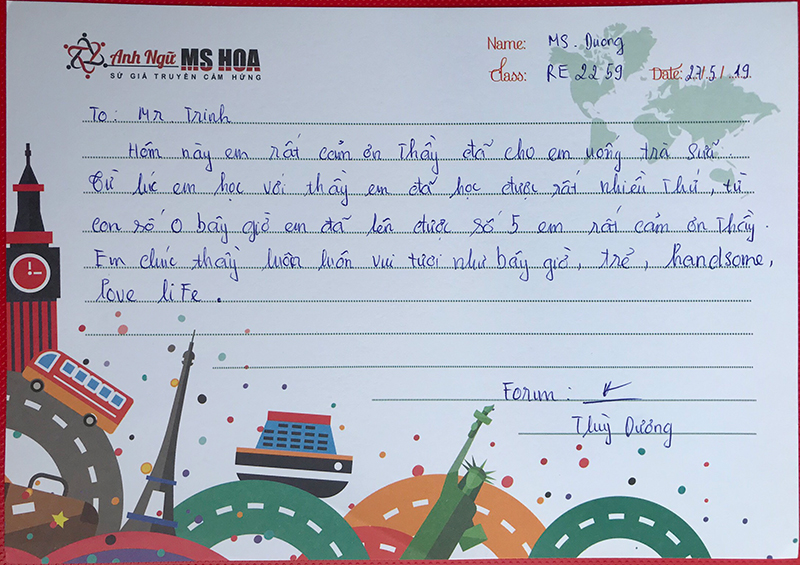 Anh Ngữ MS HOA
SỨ GIẢ TRUYỀN CẢM HỨNG
Name: MS. Duong
Class: RE 2259 Date: 27/5/19.
To: Mr Trinh
Hôm nảy em rất cảm ơn Thầy đã cho em uống trà sữa.
Từ lúc em học với thầy em đã học được rất nhiều Thứ, từ
con số 0 bây giờ em đã lên được số 5 em rất cảm ơn Thầy.
Em chúc thầy luôn luôn vui tươi như bây giờ, trẻ, handsome,
love liFe.
Forum:
Thuỳ Dương